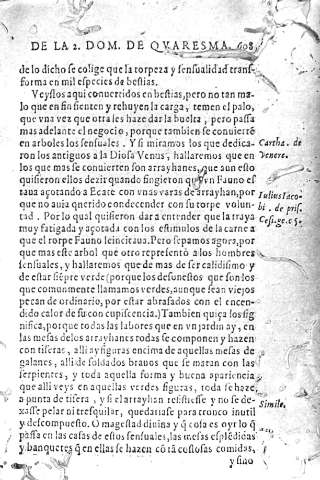 DE LA 2. DOM. DE QVARESMA. 608
de lo dicho se colige que la torpeza y sensualidad trans-
forma en mil especies de bestias.
Veyslos aqui conuertidos en bestias, pero no tan ma-
lo que en fin sienten y rehuyen la carga, temen el palo,
que vna vez que otra les haze dar la buelta, pero passa
mas adelante el negocio, porque tambien se conuierté
en arboles los sensuales. Y si miramos los que dedica-
ron los antiguos a la Diosa Venus, hallaremos que en
los que mas se conuierten son arrayhanes, que aun esto
quisieron ellos dezir quando fingieron que vn Fauno es
taua açotando a Ecate con vnas varas de arrayhan, por
que no auia querido condecender con su torpe volun-
tad. Por lo qual quisieron dar a entender que la traya
muy fatigada y açotada con los estimulos de la carne a
que el torpe Fauno le incitaua. Pero sepamos agora, por
que mas este arbol que otro representò a los hombres
sensuales, y hallaremos que de mas de ser calidissimo y
de estar siẽpre verde (porque los deshonestos que son los
que comunmente llamamos verdes, aunque sean viejos
pecan de ordinario, por estar abrasados con el encen-
dido calor de su concupiscencia.) Tambien quiça los sig
nifica, porque todas las labores que en vn jardin ay, en
las mesas de los arrayhanes todas se componen y hazen
con tiseras, alli ay figuras encima de aquellas mesas de
galanes, alli de soldados brauos que se matan con las
serpientes, y toda aquella forma y buena apariencia
que alli veys en aquellas verdes figuras, toda se haze
a punta de tisera, y si el arrayhan resistiesse y no se de-
xasse pelar ni tresquilar, quedariase para tronco inutil
y descompuesto. O magestad diuina y q̃ cosa es oyr lo q̃
passa en las casas de estos sensuales, las mesas esplẽdidas
y banquetes q̃ en ellas se hazen cõ tã costosas comidas,
y sino
Cartha. de
Venere.
Iulius Iaco-
bi. de pris.
Simile.